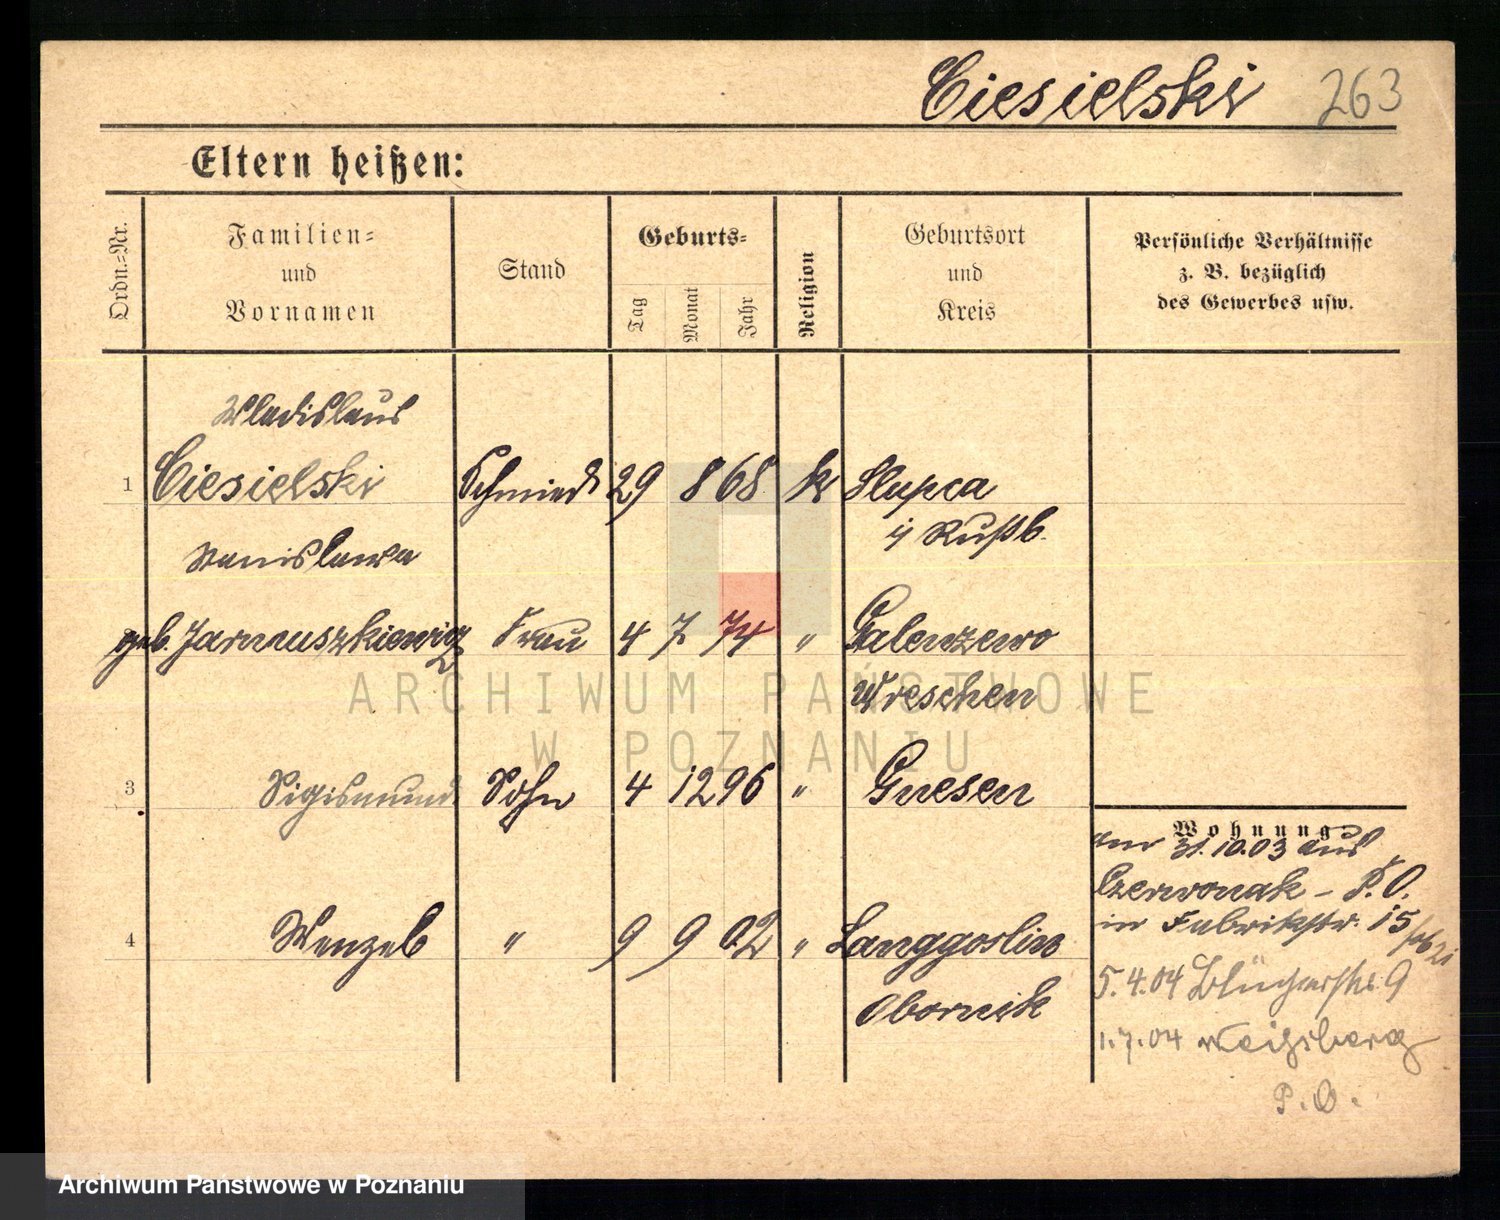 Ciesielski 263
Eltern heißen:
Ordn.-Nr.
Familien-
und
Vornamen
Stand
Geburts-
Tag
Monat
Jahr
Religion
Geburtsort
und
Kreis
Persönliche Verhältnisse
z. B. bezüglich
des Gewerbes usw.
Wladislaus
1 Ciesielski Schmied 29 8 68 k Slupca
i/ Rußl.
Stanislawa
geb. Jarnuszkiewicz Frau 4 7 74 " Galenzewo
Wreschen
3 Sigismund Sohn 4 12 96 " Gnesen
Wohnung
am 31.10.03 aus
Czerwonak - P. O.
in Fabrikstr. 15
4 Wenzel " 9 9 02 " Langgoslin
Obornik
5.4.04 Blücherstr. 9
1.7.04
P. O.
ARCHIWUM PAŃSTWOWE
W POZNANIU
Archiwum Państwowe w Poznaniu